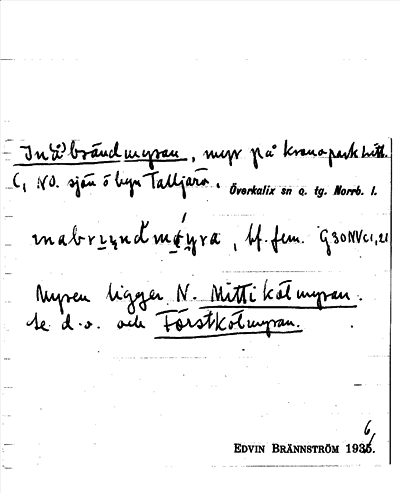 In(å)brändmyran, myr på kronopark litt.
C, NO. sjön ö byn Talljärv. Överkalix sn o. tg. Norrb. l.
bf. fem. G30NVc1,21
Myren ligger N. Mittikölmyran.
Se d.o. och Förstkölmyran.
EDVIN BRÄNNSTRÖM 1936.